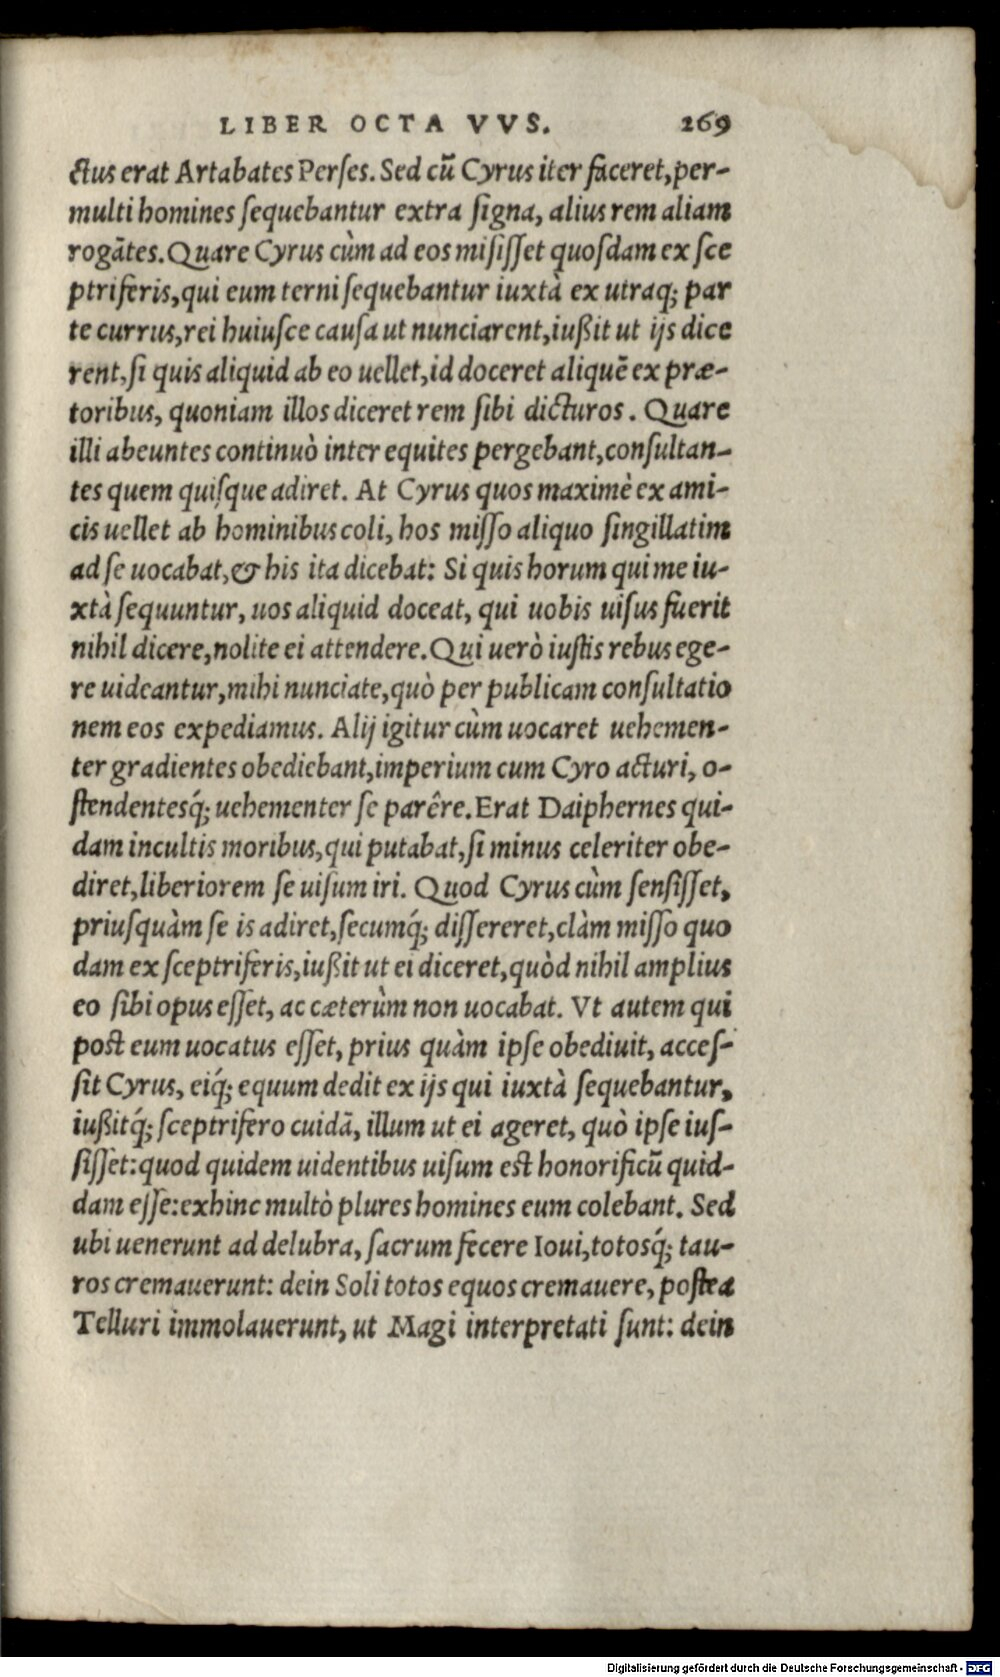 LIBER OCTA VVS. 269
ctus erat Artabates Perses. Sed cū Cyrus iter faceret, per-
multi homines sequebantur extra signa, alius rem aliam
rogātes. Quare Cyrus cùm ad eos misisset quosdam ex sce
ptriferis, qui eum terni sequebantur iuxtà ex utraq; par
te currus, rei huiusce causa ut nunciarent, iußit ut ijs dice
rent, si quis aliquid ab eo uellet, id doceret aliquē ex præ-
toribus, quoniam illos diceret rem sibi dicturos. Quare
illi abeuntes continuò inter equites pergebant, consultan-
tes quem quisque adiret. At Cyrus quos maximè ex ami-
cis uellet ab hominibus coli, hos misso aliquo singillatim
ad se uocabat, & his ita dicebat: Si quis horum qui me iu-
xtà sequuntur, uos aliquid doceat, qui uobis uisus fuerit
nihil dicere, nolite ei attendere. Qui uerò iustis rebus ege-
re uideantur, mihi nunciate, quò per publicam consultatio
nem eos expediamus. Alij igitur cùm uocaret uehemen-
ter gradientes obediebant, imperium cum Cyro acturi, o-
stendentesq́; uehementer se parêre. Erat Daiphernes qui-
dam incultis moribus, qui putabat, si minus celeriter obe-
diret, liberiorem se uisum iri. Quod Cyrus cùm sensisset,
priusquàm se is adiret, secumq́; dissereret, clàm misso quo
dam ex sceptriferis, iußit ut ei diceret, quòd nihil amplius
eo sibi opus esset, ac cæterùm non uocabat. Vt autem qui
post eum uocatus esset, prius quàm ipse obediuit, acces-
sit Cyrus, eiq́; equum dedit ex ijs qui iuxtà sequebantur,
iußitq́; sceptrifero cuidā, illum ut ei ageret, quò ipse ius-
sisset: quod quidem uidentibus uisum est honorificū quid-
dam esse: exhinc multò plures homines eum colebant. Sed
ubi uenerunt ad delubra, sacrum fecere Ioui, totosq́; tau-
ros cremauerunt: dein Soli totos equos cremauere, postea
Telluri immolauerunt, ut Magi interpretati sunt: dein
Digitalisierung gefördert durch die Deutsche Forschungsgemeinschaft - DFG